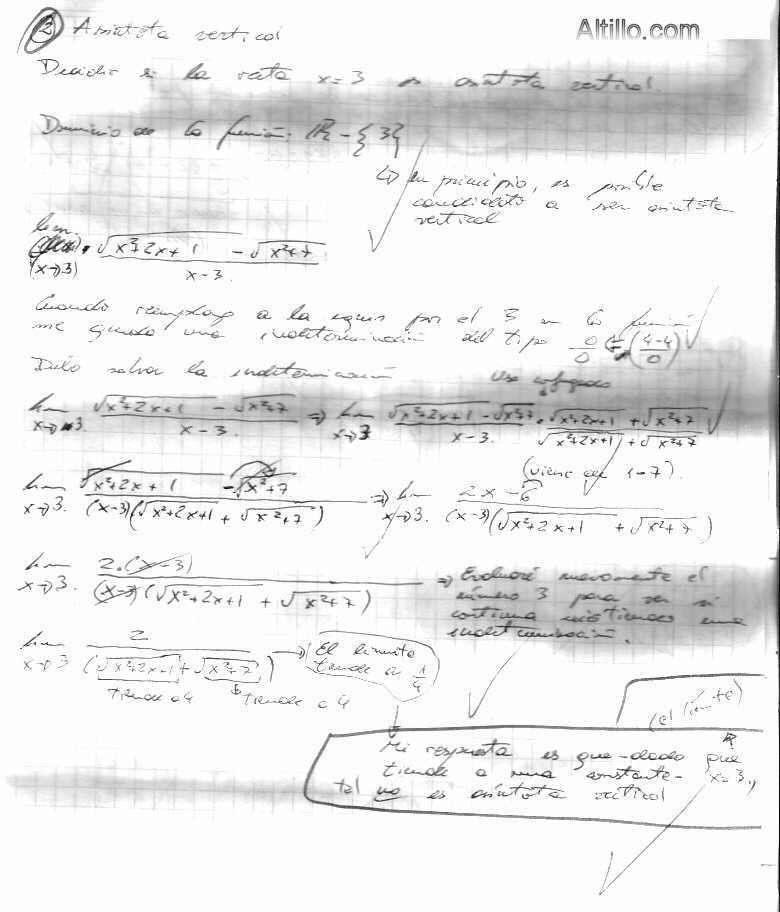 Altillo.com
2 Asíntota vertical
Decidir si la recta x=3 es asíntota vertical.
Dominio de la función: ℝ - {3}
↳ en principio, es posible
candidato a ser asíntota
vertical
lim (x→3) (√(x²+2x+1) - √(x²+7)) / (x-3)
Cuando reemplazo a la equis por el 3 en la función
me queda una indeterminación del tipo 0/0 (4-4/0)
Debo salvar la indeterminación
Uso conjugado
lim x→3 (√(x²+2x+1) - √(x²+7)) / (x-3) ⇒ lim x→3 (√(x²+2x+1) - √(x²+7)) / (x-3) · (√(x²+2x+1) + √(x²+7)) / (√(x²+2x+1) + √(x²+7))
(viene de 1-7).
lim x→3. (√(x²+2x+1) - √(x²+7)) / ((x-3)(√(x²+2x+1) + √(x²+7))) ⇒ lim x→3. (2x-6) / ((x-3)(√(x²+2x+1) + √(x²+7)))
lim x→3. 2.(x-3) / ((x-3)(√(x²+2x+1) + √(x²+7))) ⇒ Evaluaré nuevamente el
número 3 para ver si
continua existiendo una
indeterminación.
lim x→3 2 / (√(x²+2x-1) + √(x²+7)) → El límite
tiende a 1/4
tiende a 4 tiende a 4
(el límite)
Mi respuesta es que -dado que
tiende a una constante- x=3,
tal no es asíntota vertical